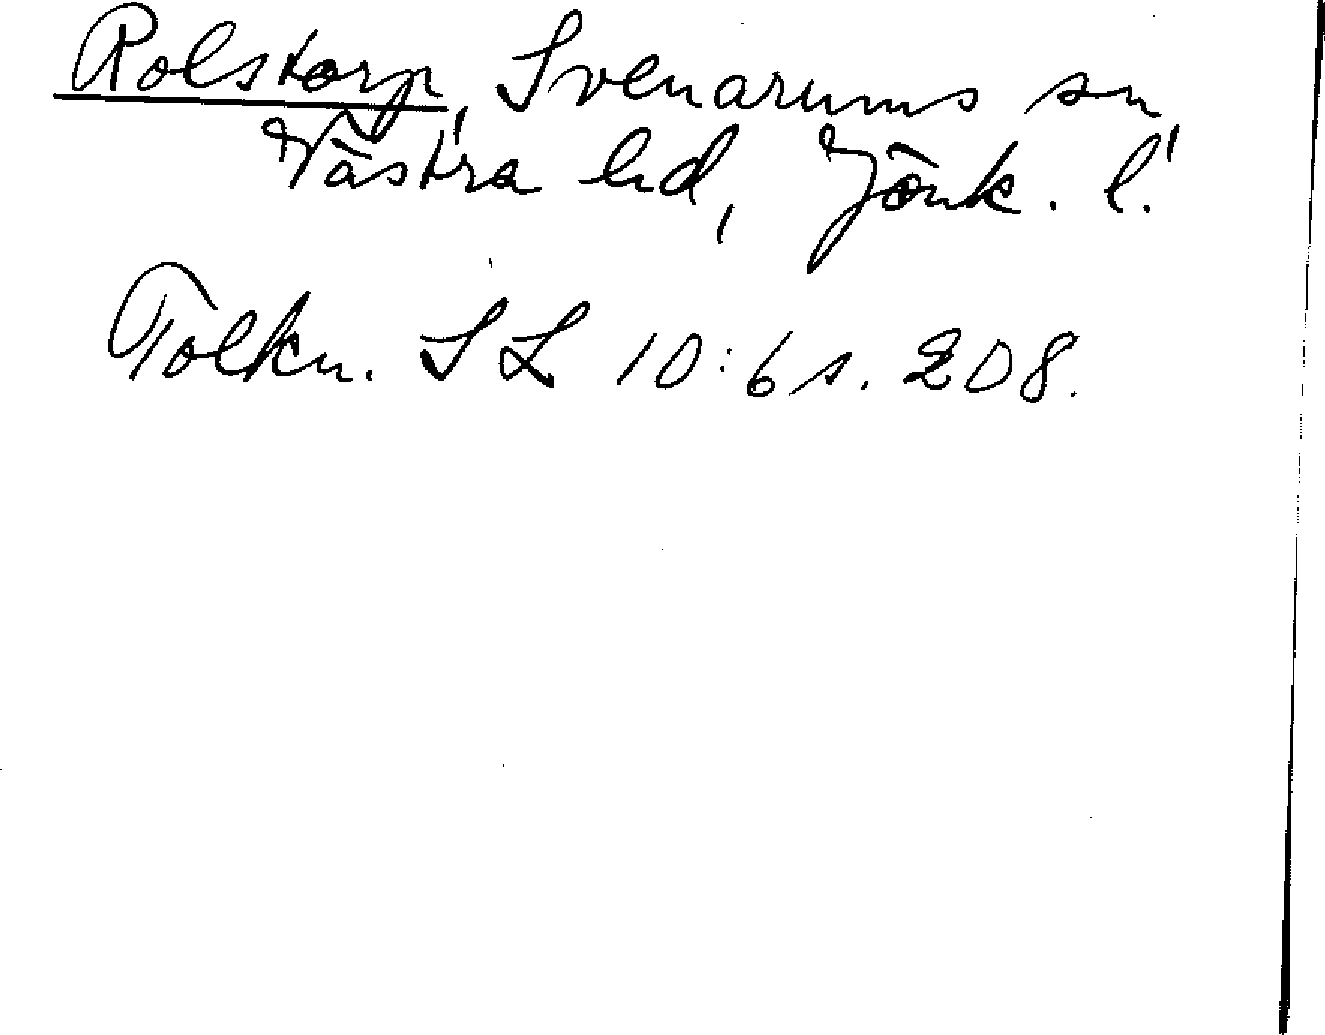 Rolstorp, Svenarums sn
Västra hd, Jönk. l.
Tolkn. SL 10:6 s. 208.